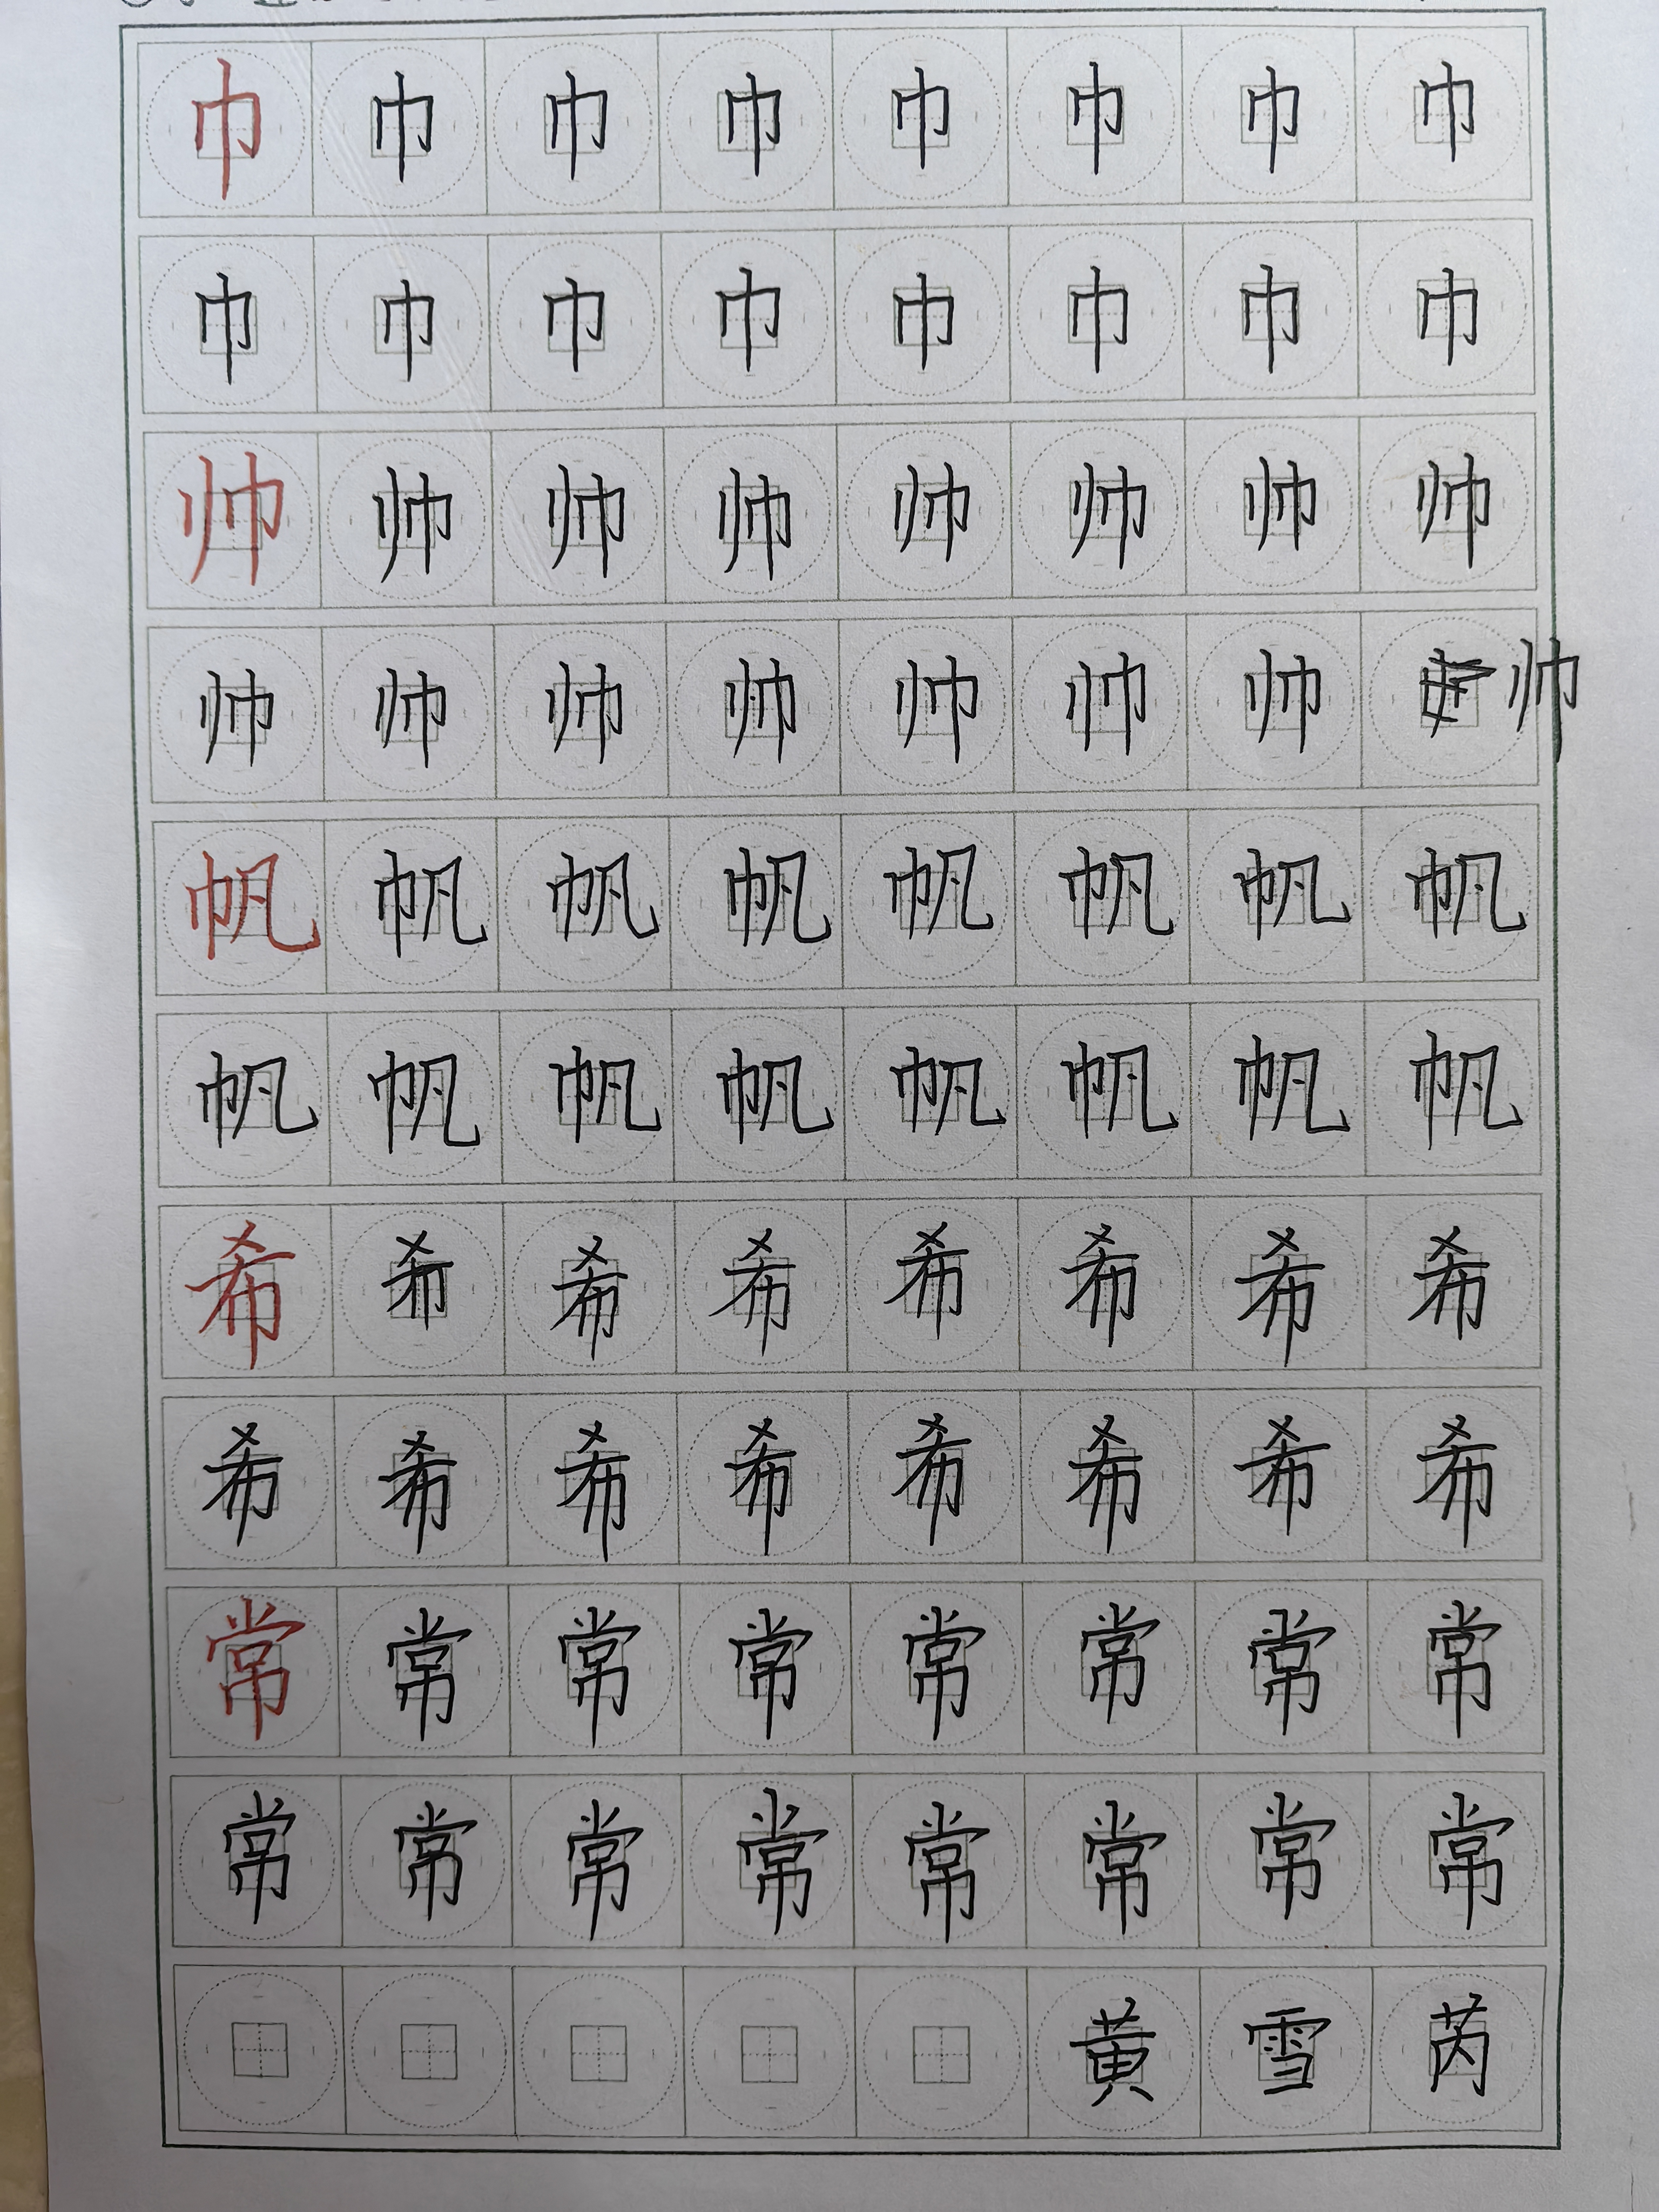 巾 巾 巾 巾 巾 巾 巾 巾
巾 巾 巾 巾 巾 巾 巾 巾
帅 帅 帅 帅 帅 帅 帅 帅
帅 帅 帅 帅 帅 帅 帅 帅
帆 帆 帆 帆 帆 帆 帆 帆
帆 帆 帆 帆 帆 帆 帆 帆
希 希 希 希 希 希 希 希
希 希 希 希 希 希 希 希
常 常 常 常 常 常 常 常
常 常 常 常 常 常 常 常
黄 雪 芮